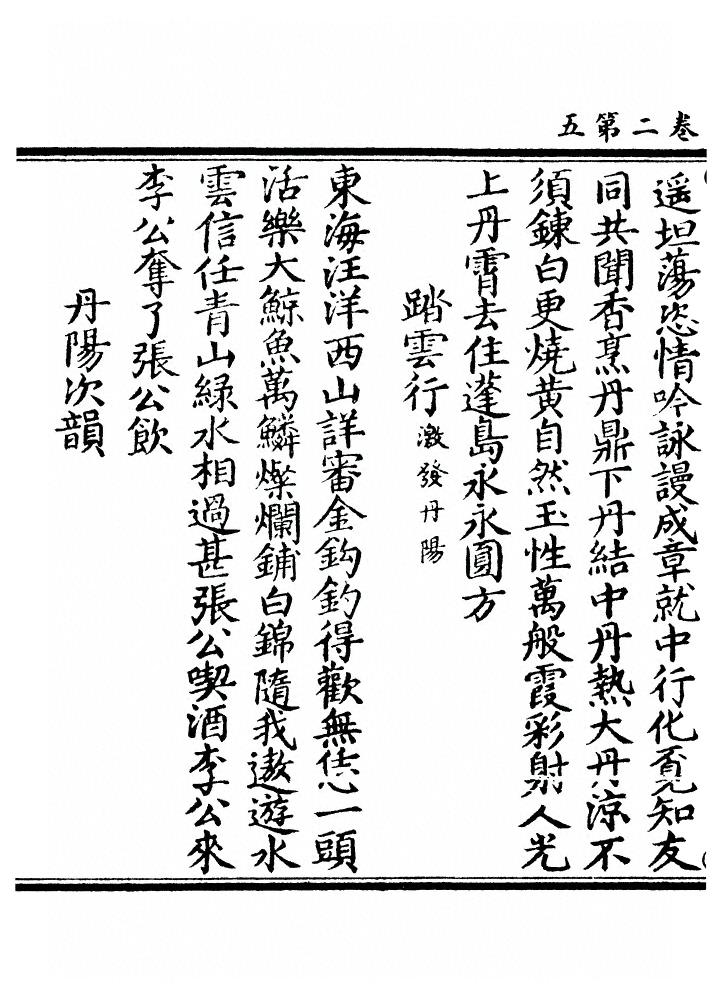 卷二第五
遥坦蕩恣情吟詠謾成章就中行化覓知友
同共聞香烹丹鼎下丹結中丹熱大丹涼不
須鍊白更燒黄自然玉性萬般霞彩射人光
上丹霄去住蓬島永永圓方
踏雲行激發丹陽
東海汪洋西山詳審金鈎釣得歡無恁一頭
活樂大鯨魚萬鱗燦爛鋪白錦隨我遨遊水
雲信任青山緑水相過甚張公喫酒李公來
李公奪了張公飲
丹陽次韻